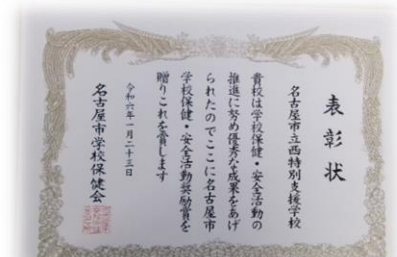 表彰状
名古屋市立西特別支援学校
貴校は学校保健・安全活動の
推進に努め優秀な成果をあげ
られたのでここに名古屋市
学校保健・安全活動奨励賞を
贈りこれを賞します
令和六年一月二十三日
名古屋市学校保健会